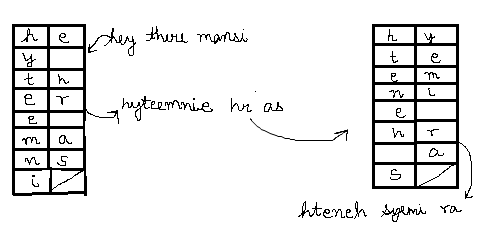 h e
y
t h
e r
e
m a
n s
i
hey there mansi
hyteemnie hr as
h y
t e
e m
n i
e
h r
a
s
hteneh syemi ra